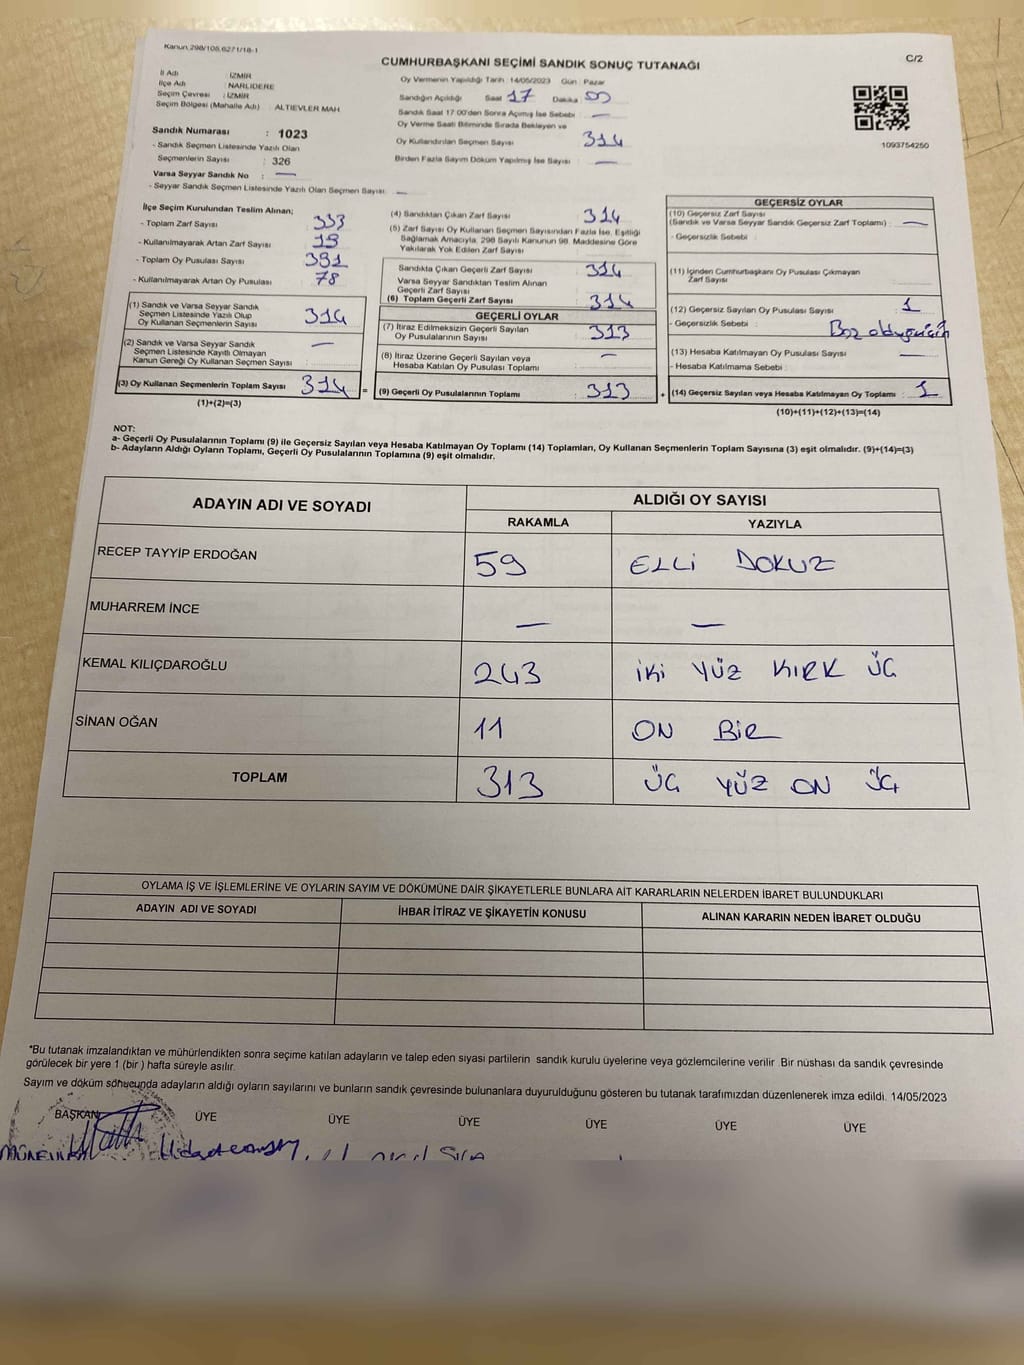 Kanun 298/105,6271/18-1
CUMHURBAŞKANI SEÇİMİ SANDIK SONUÇ TUTANAĞI
C/2
İl Adı : İZMİR
İlçe Adı : NARLIDERE
Seçim Çevresi : İZMİR
Seçim Bölgesi (Mahalle Adı) : ALTIEVLER MAH
Sandık Numarası : 1023
- Sandık Seçmen Listesinde Yazılı Olan
Seçmenlerin Sayısı : 326
Varsa Seyyar Sandık No : —
- Seyyar Sandık Seçmen Listesinde Yazılı Olan Seçmen Sayısı: —
Oy Vermenin Yapıldığı Tarih :14/05/2023 Gün : Pazar
Sandığın Açıldığı Saat : 17 Dakika :
Sandık Saat 17:00'den Sonra Açımış İse Sebebi : —
Oy Verme Saati Bitiminde Sırada Bekleyen ve
Oy Kullandırılan Seçmen Sayısı : 314
Birden Fazla Sayım Döküm Yapılmış İse Sayısı : —
1093754250
İlçe Seçim Kurulundan Teslim Alınan;
- Toplam Zarf Sayısı : 333
- Kullanılmayarak Artan Zarf Sayısı : 19
- Toplam Oy Pusulası Sayısı : 391
- Kullanılmayarak Artan Oy Pusulası : 78
(1) Sandık ve Varsa Seyyar Sandık
Seçmen Listesinde Yazılı Olup
Oy Kullanan Seçmenlerin Sayısı : 314
(2) Sandık ve Varsa Seyyar Sandık
Seçmen Listesinde Kayıtlı Olmayan
Kanun Gereği Oy Kullanan Seçmen Sayısı : —
(3) Oy Kullanan Seçmenlerin Toplam Sayısı : 314 =
(1)+(2)=(3)
(4) Sandıktan Çıkan Zarf Sayısı : 314
(5) Zarf Sayısı Oy Kullanan Seçmen Sayısından Fazla İse, Eşitliği
Sağlamak Amacıyla, 298 Sayılı Kanunun 98. Maddesine Göre
Yakılarak Yok Edilen Zarf Sayısı :
Sandıkta Çıkan Geçerli Zarf Sayısı : 314
Varsa Seyyar Sandıktan Teslim Alınan
Geçerli Zarf Sayısı :
(6) Toplam Geçerli Zarf Sayısı : 314
GEÇERLİ OYLAR
(7) İtiraz Edilmeksizin Geçerli Sayılan
Oy Pusulalarının Sayısı : 313
(8) İtiraz Üzerine Geçerli Sayılan veya
Hesaba Katılan Oy Pusulası Toplamı : —
(9) Geçerli Oy Pusulalarının Toplamı : 313 +
GEÇERSİZ OYLAR
(10) Geçersiz Zarf Sayısı
(Sandık ve Varsa Seyyar Sandık Geçersiz Zarf Toplamı) : —
- Geçersizlik Sebebi :
(11) İçinden Cumhurbaşkanı Oy Pusulası Çıkmayan
Zarf Sayısı :
(12) Geçersiz Sayılan Oy Pusulası Sayısı : 1
- Geçersizlik Sebebi : Boz olduğu için
(13) Hesaba Katılmayan Oy Pusulası Sayısı : —
- Hesaba Katılmama Sebebi :
(14) Geçersiz Sayılan veya Hesaba Katılmayan Oy Toplamı : 1
(10)+(11)+(12)+(13)=(14)
NOT:
a- Geçerli Oy Pusulalarının Toplamı (9) ile Geçersiz Sayılan veya Hesaba Katılmayan Oy Toplamı (14) Toplamları, Oy Kullanan Seçmenlerin Toplam Sayısına (3) eşit olmalıdır. (9)+(14)=(3)
b- Adayların Aldığı Oyların Toplamı, Geçerli Oy Pusulalarının Toplamına (9) eşit olmalıdır.
ADAYIN ADI VE SOYADI
ALDIĞI OY SAYISI
RAKAMLA YAZIYLA
RECEP TAYYİP ERDOĞAN 59 ELLİ DOKUZ
MUHARREM İNCE — —
KEMAL KILIÇDAROĞLU 243 İKİ YÜZ KIRK ÜÇ
SİNAN OĞAN 11 ON BİR
TOPLAM 313 ÜÇ YÜZ ON ÜÇ
OYLAMA İŞ VE İŞLEMLERİNE VE OYLARIN SAYIM VE DÖKÜMÜNE DAİR ŞİKAYETLERLE BUNLARA AİT KARARLARIN NELERDEN İBARET BULUNDUKLARI
ADAYIN ADI VE SOYADI İHBAR İTİRAZ VE ŞİKAYETİN KONUSU ALINAN KARARIN NEDEN İBARET OLDUĞU
*Bu tutanak imzalandıktan ve mühürlendikten sonra seçime katılan adayların ve talep eden siyasi partilerin sandık kurulu üyelerine veya gözlemcilerine verilir. Bir nüshası da sandık çevresinde
görülecek bir yere 1 (bir) hafta süreyle asılır.
Sayım ve döküm sonucunda adayların aldığı oyların sayılarını ve bunların sandık çevresinde bulunanlara duyurulduğunu gösteren bu tutanak tarafımızdan düzenlenerek imza edildi. 14/05/2023
BAŞKAN ÜYE ÜYE ÜYE ÜYE ÜYE ÜYE